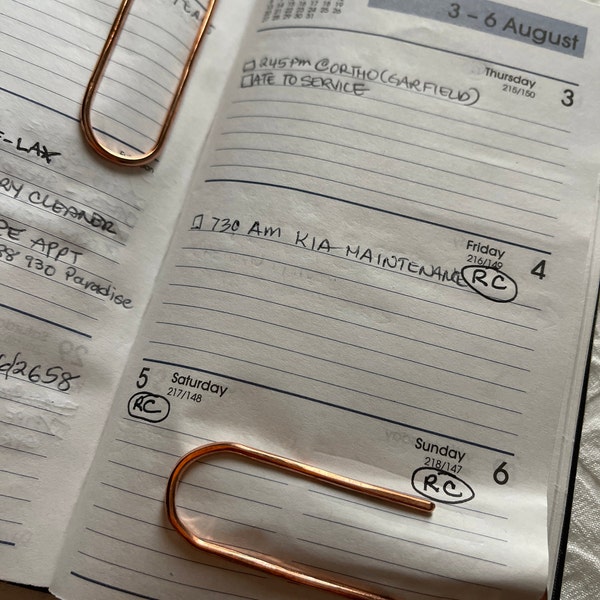 -LAX
RY CLEANER
APPT
930 Paradise
2658
3 – 6 August
Thursday
215/150
3
□ 245pm @ORTHO(GARFIELD)
□ATE TO SERVICE
Friday
216/149
4
□ 730 AM KIA MAINTENANE
RC
5
Saturday
217/148
RC
Sunday
218/147
6
RC